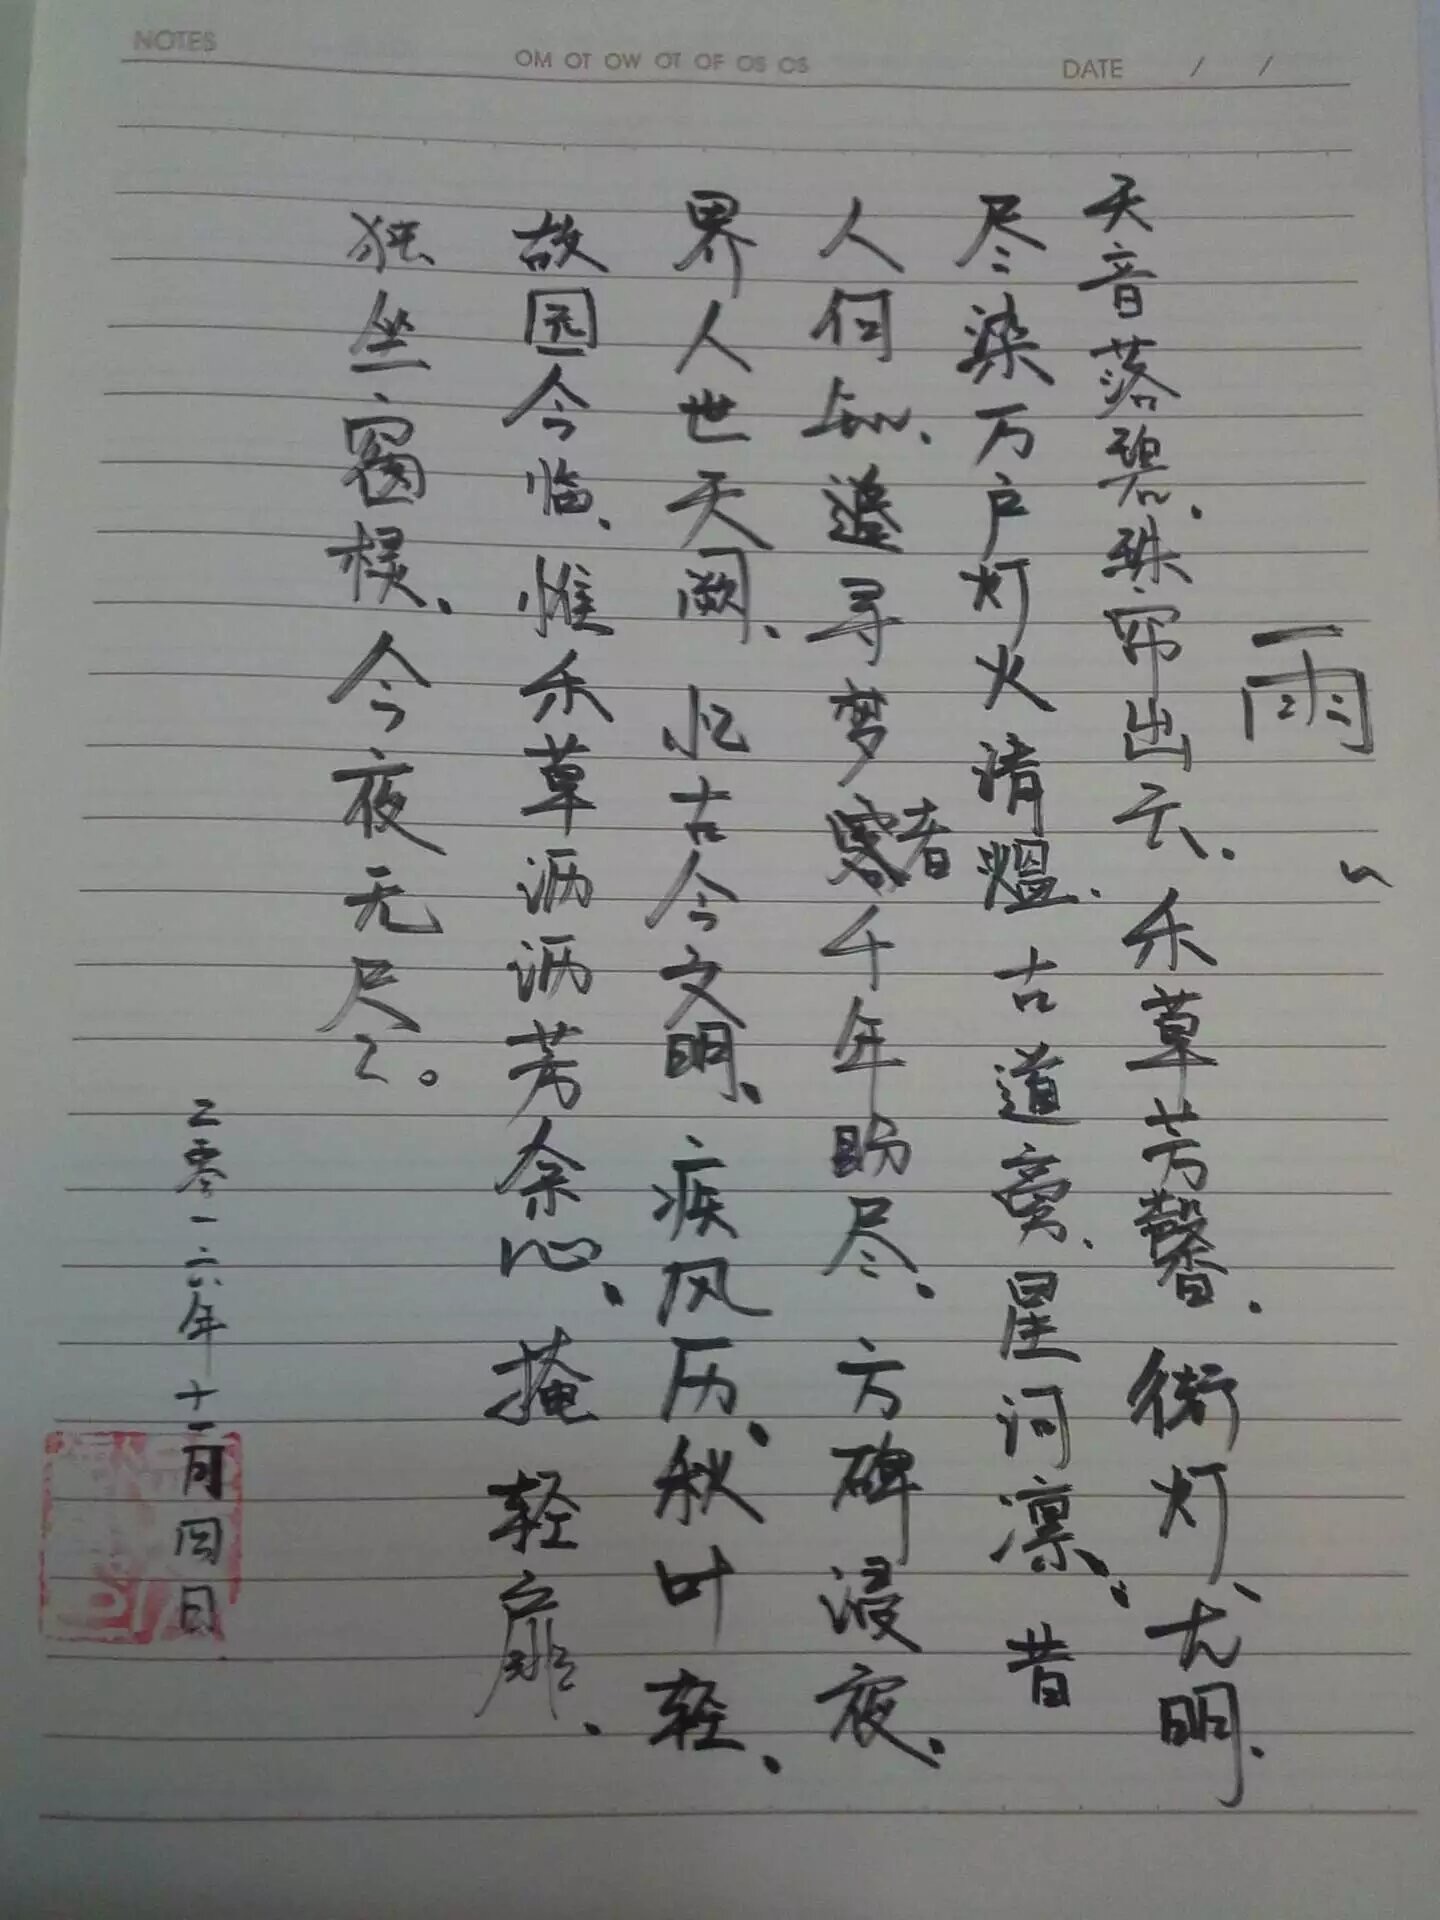 NOTES
OM OT OW OT OF OS OS
DATE / /
雨
天音落碧.珠帘出云.禾草芳馨.街灯尤明.
尽染万户灯火清煴.古道 星河凛.昔
人何知.追寻梦者千年盼尽.方碑浸夜.
界人世天阙.忆古今文明.疾风历.秋叶轻.
故园今临.惟禾草沥沥芳余心.掩轻扉.
独坐窗棂.今夜无尺了。
二零一六年十一月四日